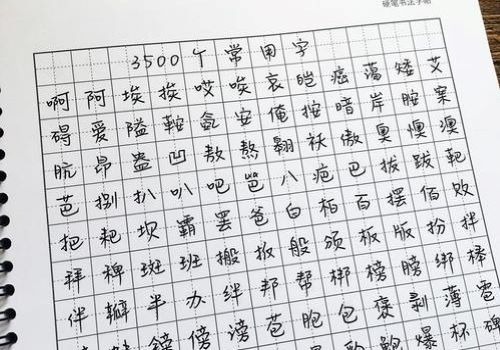 硬笔书法字帖
3500个常用字
啊阿埃挨哎唉哀皑癌蔼矮艾
碍爱隘鞍氨安俺按暗岸胺案
肮昂盎凹敖熬翱袄傲奥懊澳
芭捌扒叭吧笆八疤巴拔跋靶
把耙坝霸罢爸白柏百摆佰败
拜稗斑班搬扳般颁板版扮拌
伴瓣半办绊邦帮梆榜膀绑棒
镑傍谤苞胞包褒剥薄雹
鲍爆杯碑